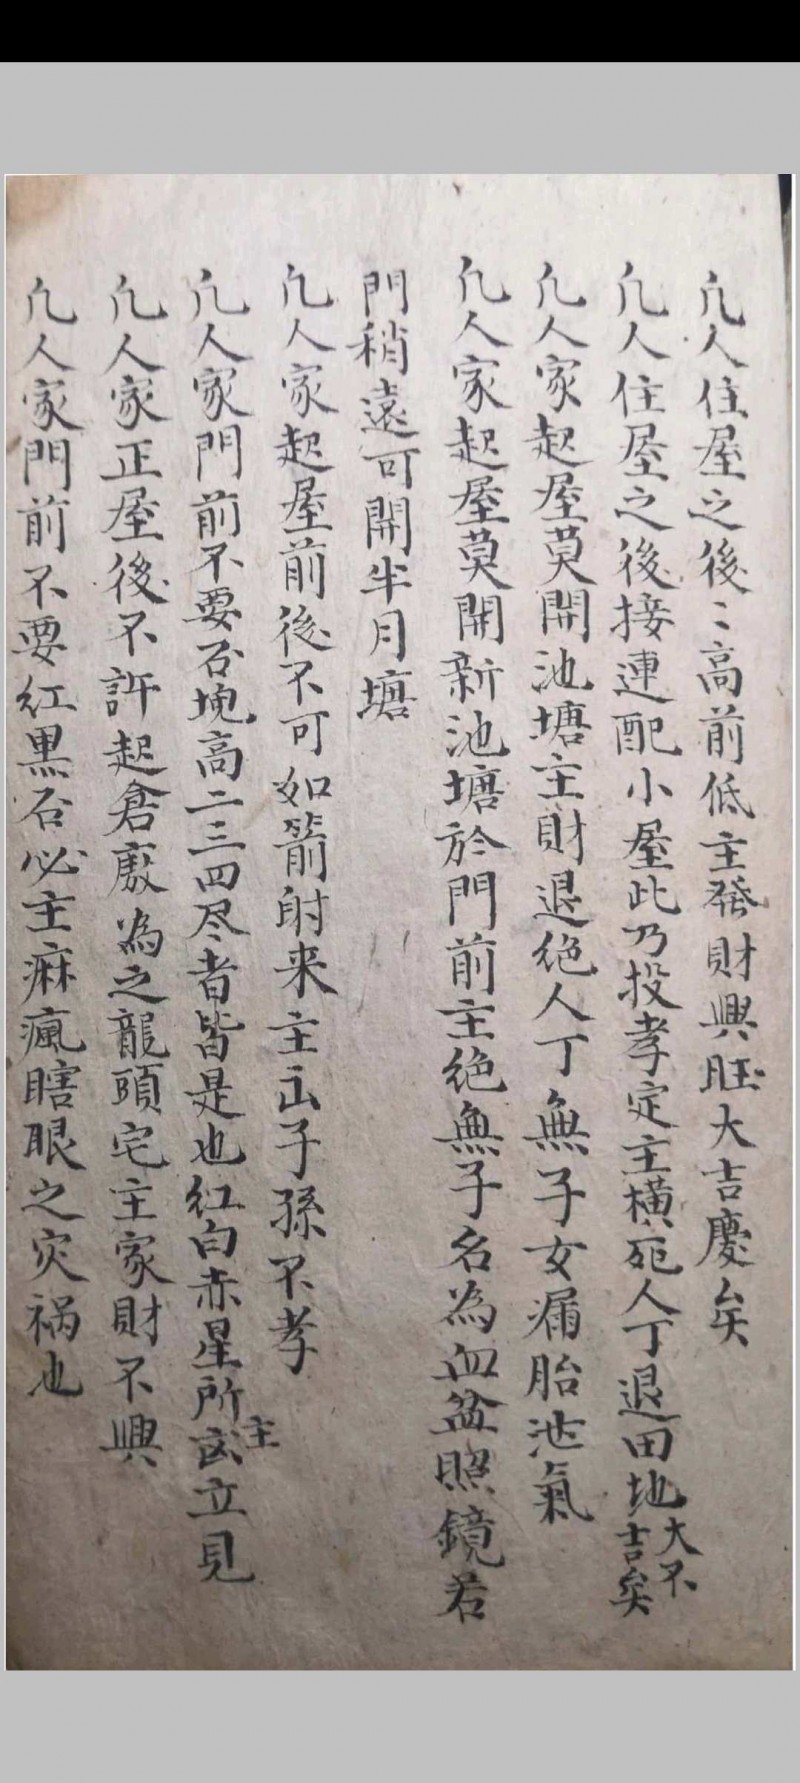 凡人住屋之後〻高前低主發財興旺大吉慶矣
凡人住屋之後接連配小屋此乃投孝定主橫死人丁退田地大不吉矣
凡人家起屋莫開池塘主財退绝人丁無子女漏胎池氣
凡人家起屋莫開新池塘於門前主绝無子名為血盆照鏡若
門稍遠可開半月塘
凡人家起屋前後不可如箭射来主出子孫不孝
凡人家門前不要石塊高二三四尽者皆是也紅白赤星所主立見
凡人家正屋後不許起倉廒為之龍頭宅主家財不興
凡人家門前不要紅黑石必主麻瘋瞎眼之灾祸也